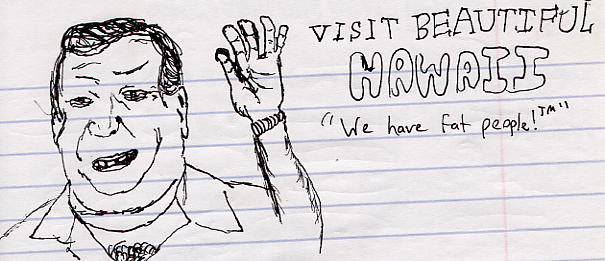 VISIT BEAUTIFUL
HAWAII
"We have fat people!™"